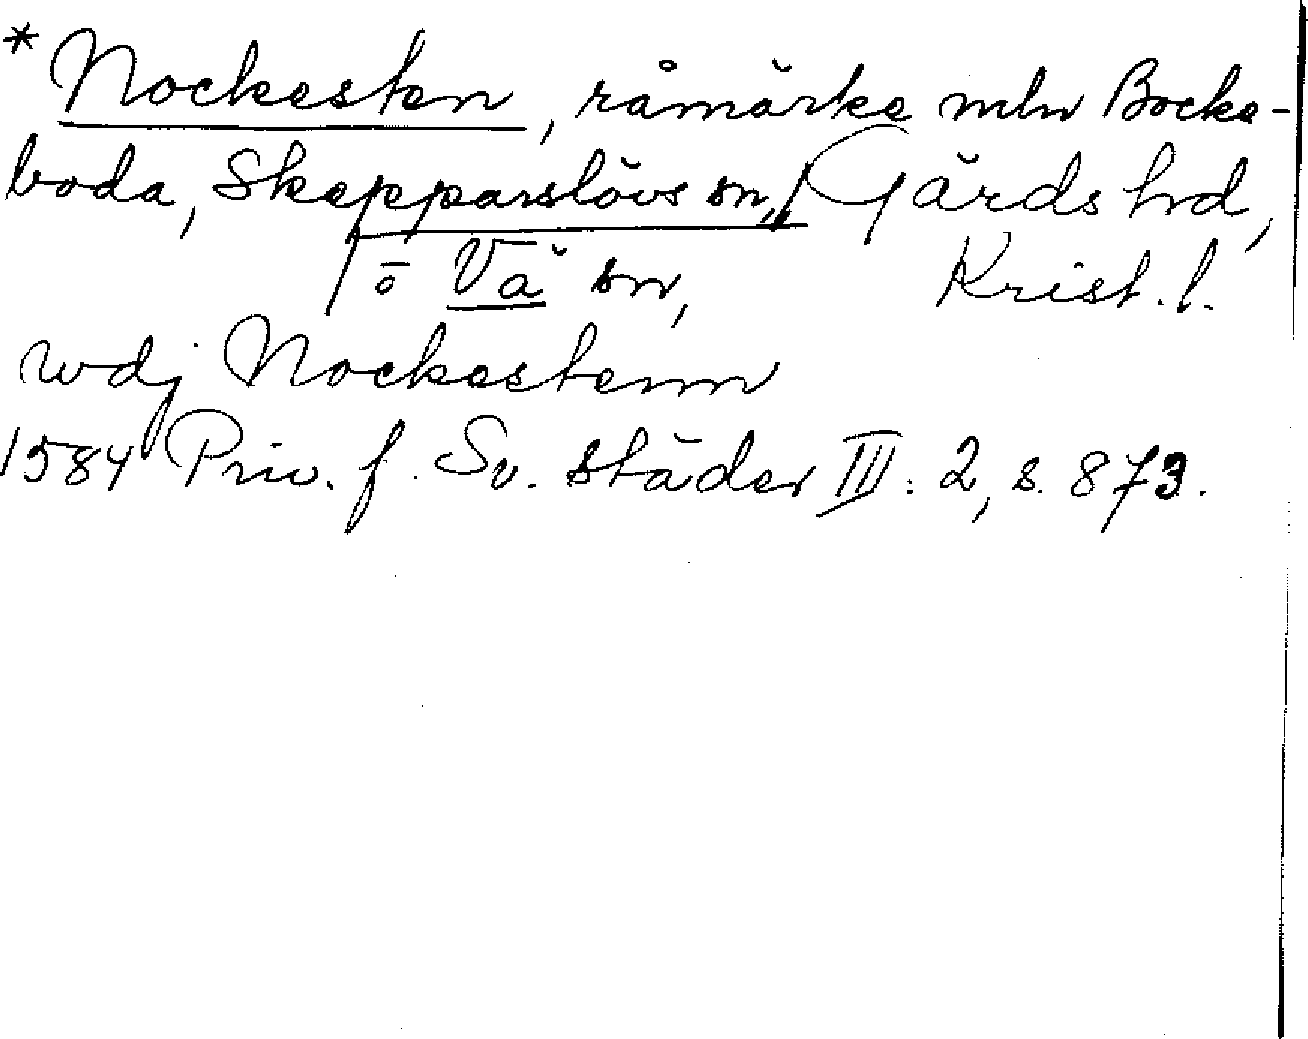 *Nockesten, råmärke mln Bocke-
boda, Skepparslövs sn, Gärds hd,
o Vä sn, Krist. l.
wdj Nockestenn
1584 Priv. f. Sv. städer III: 2, s. 873.